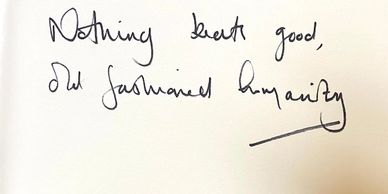 Nothing beats good,
old fashioned humanity